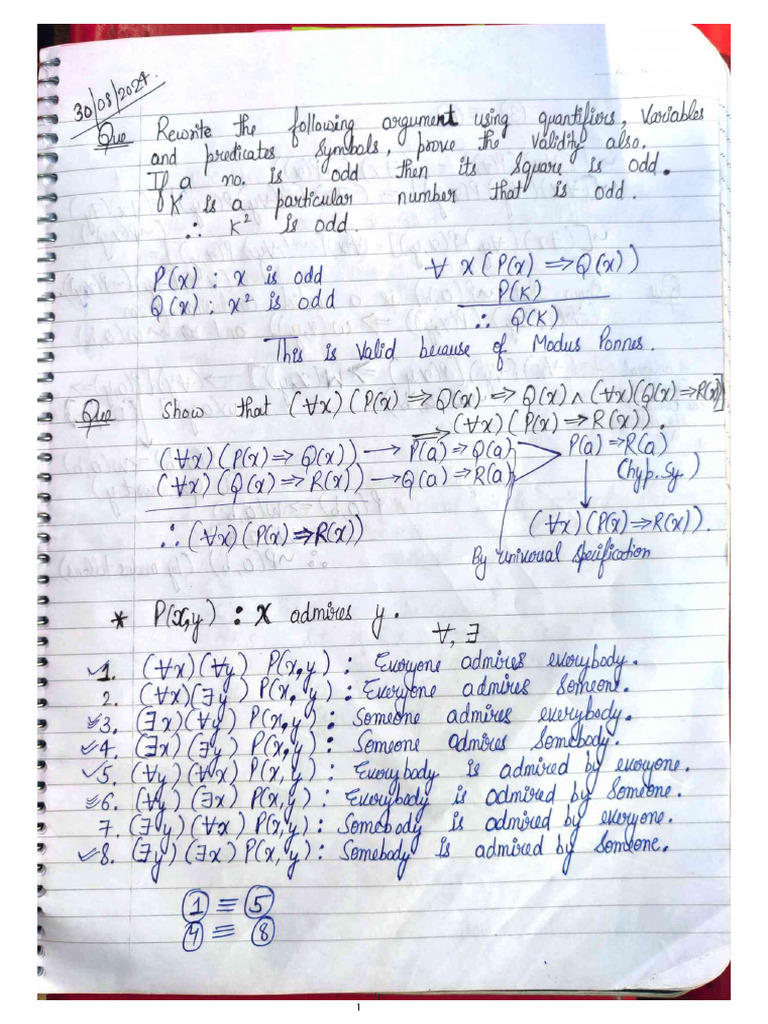 30/08/2024.
Que Rewrite the following argument using quantifiers, Variables
and predicates symbols, prove the validity also.
If a no. is odd then its square is odd.
If K is a particular number that is odd.
∴ K² is odd.
P(x) : x is odd ∀ x(P(x) ⇒ Q(x))
Q(x) : x² is odd P(K)
∴ Q(K)
This is valid because of Modus Ponnes.
Que Show that (∀x)(P(x) ⇒ Q(x) ⇒ Q(x) ∧ (∀x)(Q(x) ⇒ R(x)]
⇒ (∀x)(P(x) ⇒ R(x)).
(∀x)(P(x) ⇒ Q(x)) → P(a) ⇒ Q(a) P(a) ⇒ R(a)
(∀x)(Q(x) ⇒ R(x)) → Q(a) ⇒ R(a) (hyp. Sy.)
∴ (∀x)(P(x) ⇒ R(x)) (∀x)(P(x) ⇒ R(x)).
By universal specification
* P(x,y) : X admires y.
∀, ∃
✓1. (∀x)(∀y) P(x,y) : Everyone admires everybody.
2. (∀x)(∃y) P(x, y) : Everyone admires someone.
3. (∃x)(∀y) P(x,y) : Someone admires everybody.
4. (∃x)(∃y) P(x,y) : Someone admires Somebody.
✓5. (∀y)(∀x) P(x, y) : Everybody is admired by everyone.
6. (∀y) (∃x) P(x,y) : Everybody is admired by someone.
7. (∃y) (∀x) P(x,y) : Somebody is admired by everyone.
8. (∃y) (∃x) P(x, y) : Somebody is admired by someone.
1 ≡ 5
4 ≡ 8
1